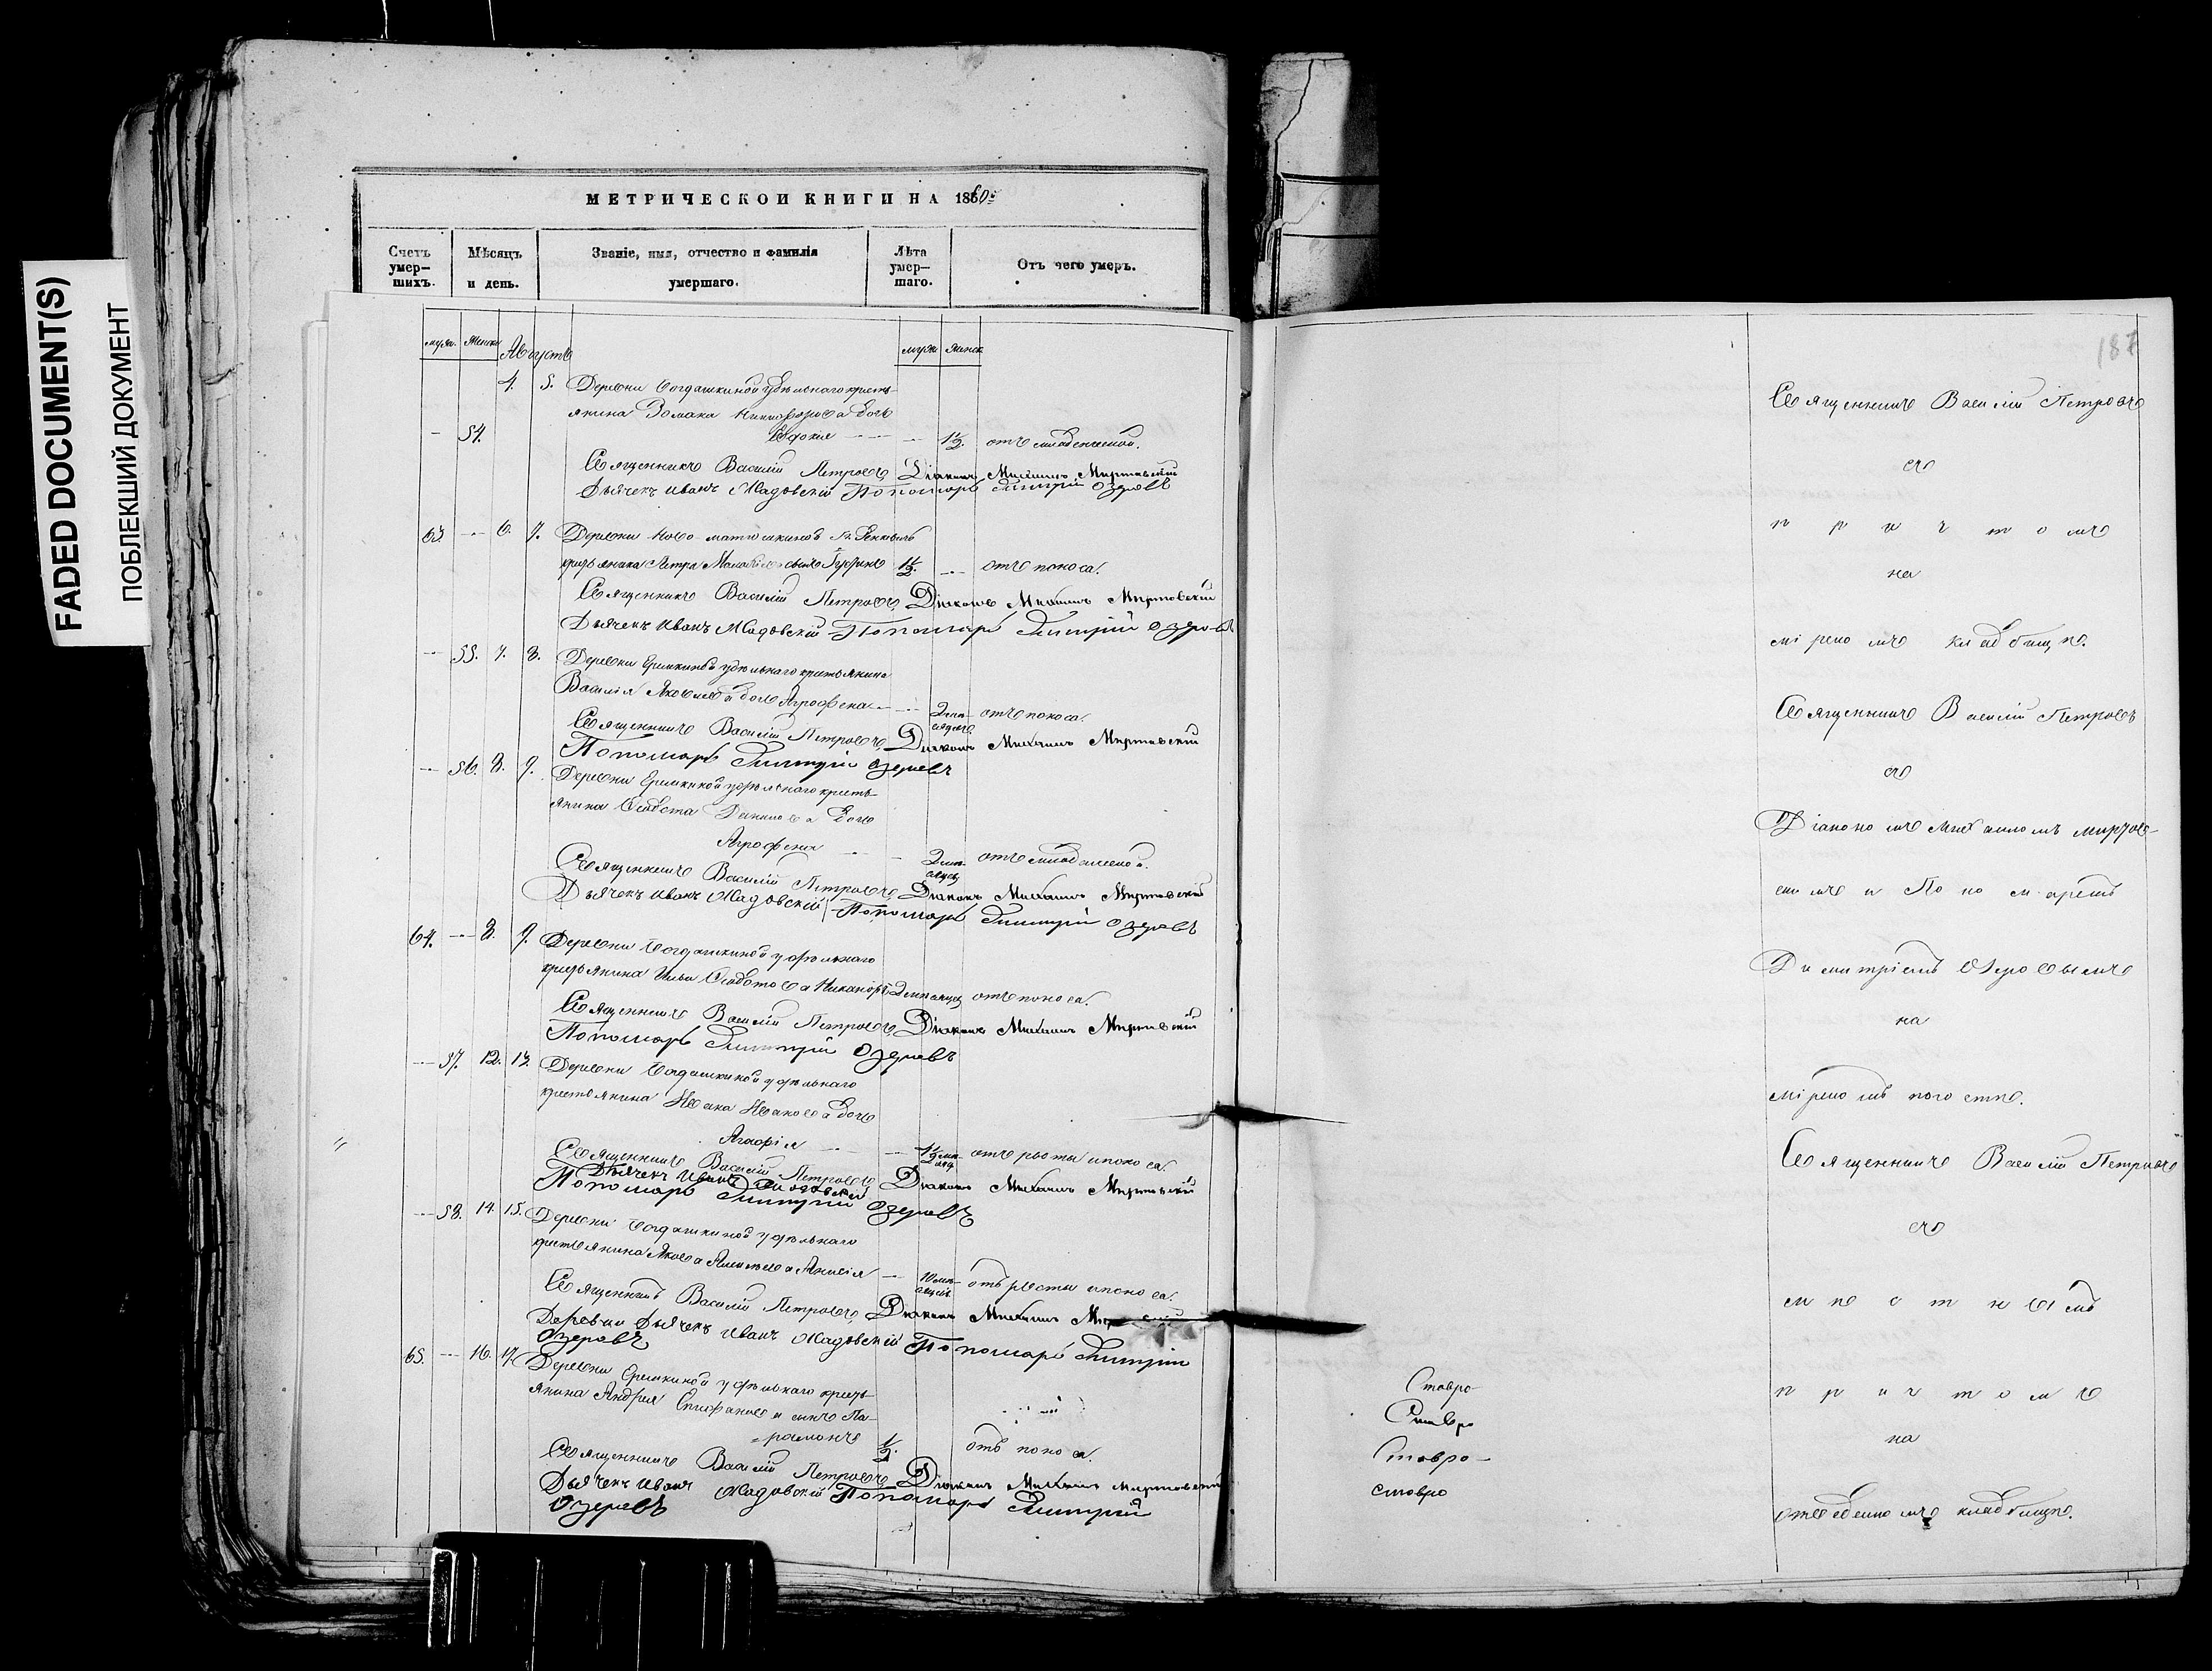 FADED DOCUMENT(S)
ПОБЛЕКШИЙ ДОКУМЕНТ
МЕТРИЧЕСКОЙ КНИГИ НА 1860:
Счетъ умер-шихъ.
Мѣсяцъ и день.
Званіе, имя, отчество и фамилія умершаго.
Лѣта умер-шаго.
Отъ чего умеръ.
муж. женск Августъ муж женск
4. 5. Деревни Богдашкиной удѣльнаго кресть-
янина Никифорова дочь
54. Евдокія 1½. отъ младенческой.
Священникъ Василій Петровъ Діаконъ Михаилъ Миртовскій
Дьячекъ Иванъ Жадовскій Пономарь Димитрій Озеровъ
63. 6. 7. Деревни Ново-матюшкиной
Петра сынъ 1½. отъ поноса.
Священникъ Василій Петровъ, Діаконъ Михаилъ Миртовскій
Дьячекъ Иванъ Жадовскій Пономарь Димитрій Озеровъ
55. 7. 8. Деревни Еремкиной удѣльнаго крестьянина
Василія Яковлева дочь Агрофена 2 мѣ-сяцевъ отъ поноса.
Священникъ Василій Петровъ, Діаконъ Михаилъ Миртовскій
Пономарь Димитрій Озеровъ
56. 8. 9. Деревни Еремкиной удѣльнаго кресть-
янина Данилова дочь
Агрофена 2 мѣ-сяц отъ младенческой.
Священникъ Василій Петровъ, Діаконъ Михаилъ Миртовскій
Дьячекъ Иванъ Жадовскій Пономарь Димитрій Озеровъ
64. 8. 9. Деревни Богдашкиной удѣльнаго
крестьянина Ильи Никаноръ 2 мѣсяц отъ поноса.
Священникъ Василій Петровъ, Діаконъ Михаилъ Миртовскій
Пономарь Димитрій Озеровъ
57. 12. 13. Деревни Богдашкиной удѣльнаго
крестьянина Ивана Иванова дочь
Агафія отъ рвоты и поноса.
Священникъ Василій Петровъ Діаконъ Михаилъ Миртовскій
Дьячекъ Иванъ Жадовскій
Пономарь Димитрій Озеровъ
58. 14. 15. Деревни Богдашкиной удѣльнаго
крестьянина Якова Анисія 10 мѣ-сяцевъ отъ рвоты и поноса.
Священникъ Василій Петровъ, Діаконъ Михаилъ
Деревни Дьячекъ Иванъ Жадовскій Пономарь Димитрій
Озеровъ
65. 16. 17. Деревни Еремкиной удѣльнаго кресть-
янина Андрея Епифанова сынъ Па-
рамонъ ½. отъ поноса.
Священникъ Василій Петровъ, Діаконъ Михаилъ Миртовскій
Дьячекъ Иванъ Жадовскій Пономарь Димитрій
Озеровъ
187
Священникъ Василій Петровъ
съ
причтомъ
на
мірскомъ кладбищѣ.
Священникъ Василій Петровъ
съ
Діакономъ Михаиломъ Миртов-
скимъ и Пономаремъ
Димитріемъ Озеровымъ
на
мірскомъ погостѣ.
Священникъ Василій Петровъ
съ
мѣстнымъ
причтомъ
на
отведенномъ кладбищѣ.
Ставро-
Ставро
Ставро-
ставро